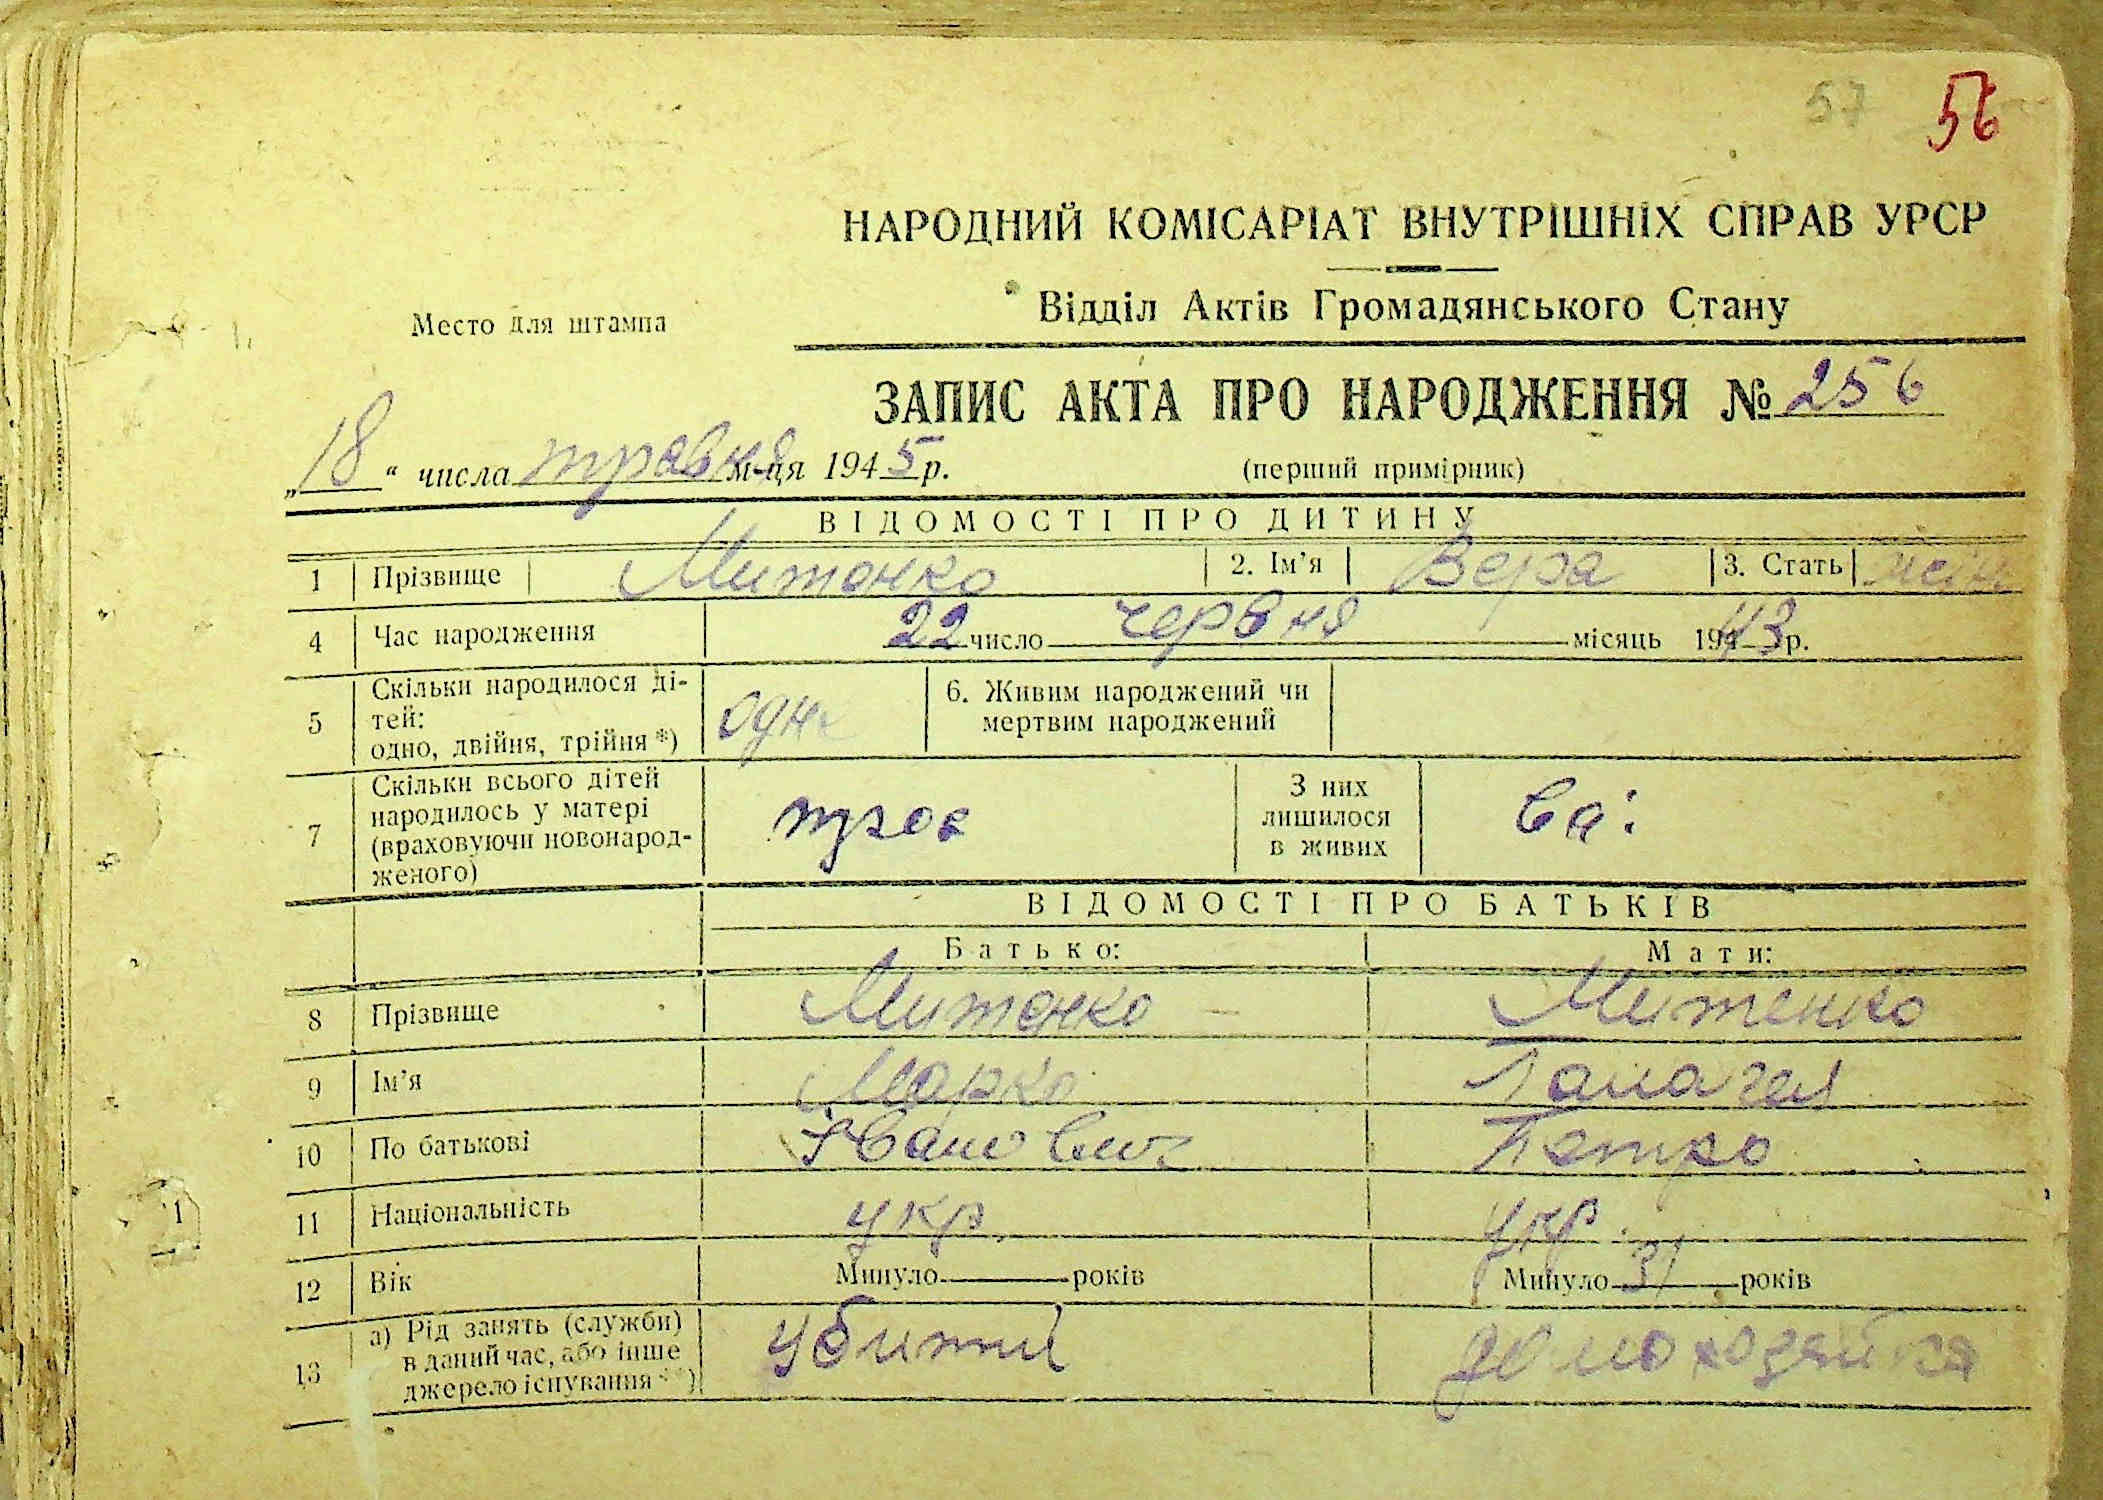 57 56
НАРОДНИЙ КОМІСАРІАТ ВНУТРІШНІХ СПРАВ УРСР
Место для штампа
Відділ Актів Громадянського Стану
ЗАПИС АКТА ПРО НАРОДЖЕННЯ № 256
„18“ числа травня м-ця 1945 р.
(перший примірник)
ВІДОМОСТІ ПРО ДИТИНУ
1 Прізвище Митенко 2. Ім’я Вера 3. Стать
4 Час народження 22 число червня місяць 1943 р.
5 Скільки народилося ді-
тей:
одно, двійня, трійня *)
одне
6. Живим народжений чи
мертвим народжений
7 Скільки всього дітей
народилось у матері
(враховуючи новонарод-
женого)
троє
З них
лишилося
в живих
ВІДОМОСТІ ПРО БАТЬКІВ
Батько: Мати:
8 Прізвище Митенко Митенко
9 Ім’я Марко
10 По батькові Іванович Петро
11 Національність укр. укр.
12 Вік Минуло років Минуло 31 років
13 а) Рід занять (служби)
в даний час, або інше
джерело існування **)
убитий домохозяйка
1